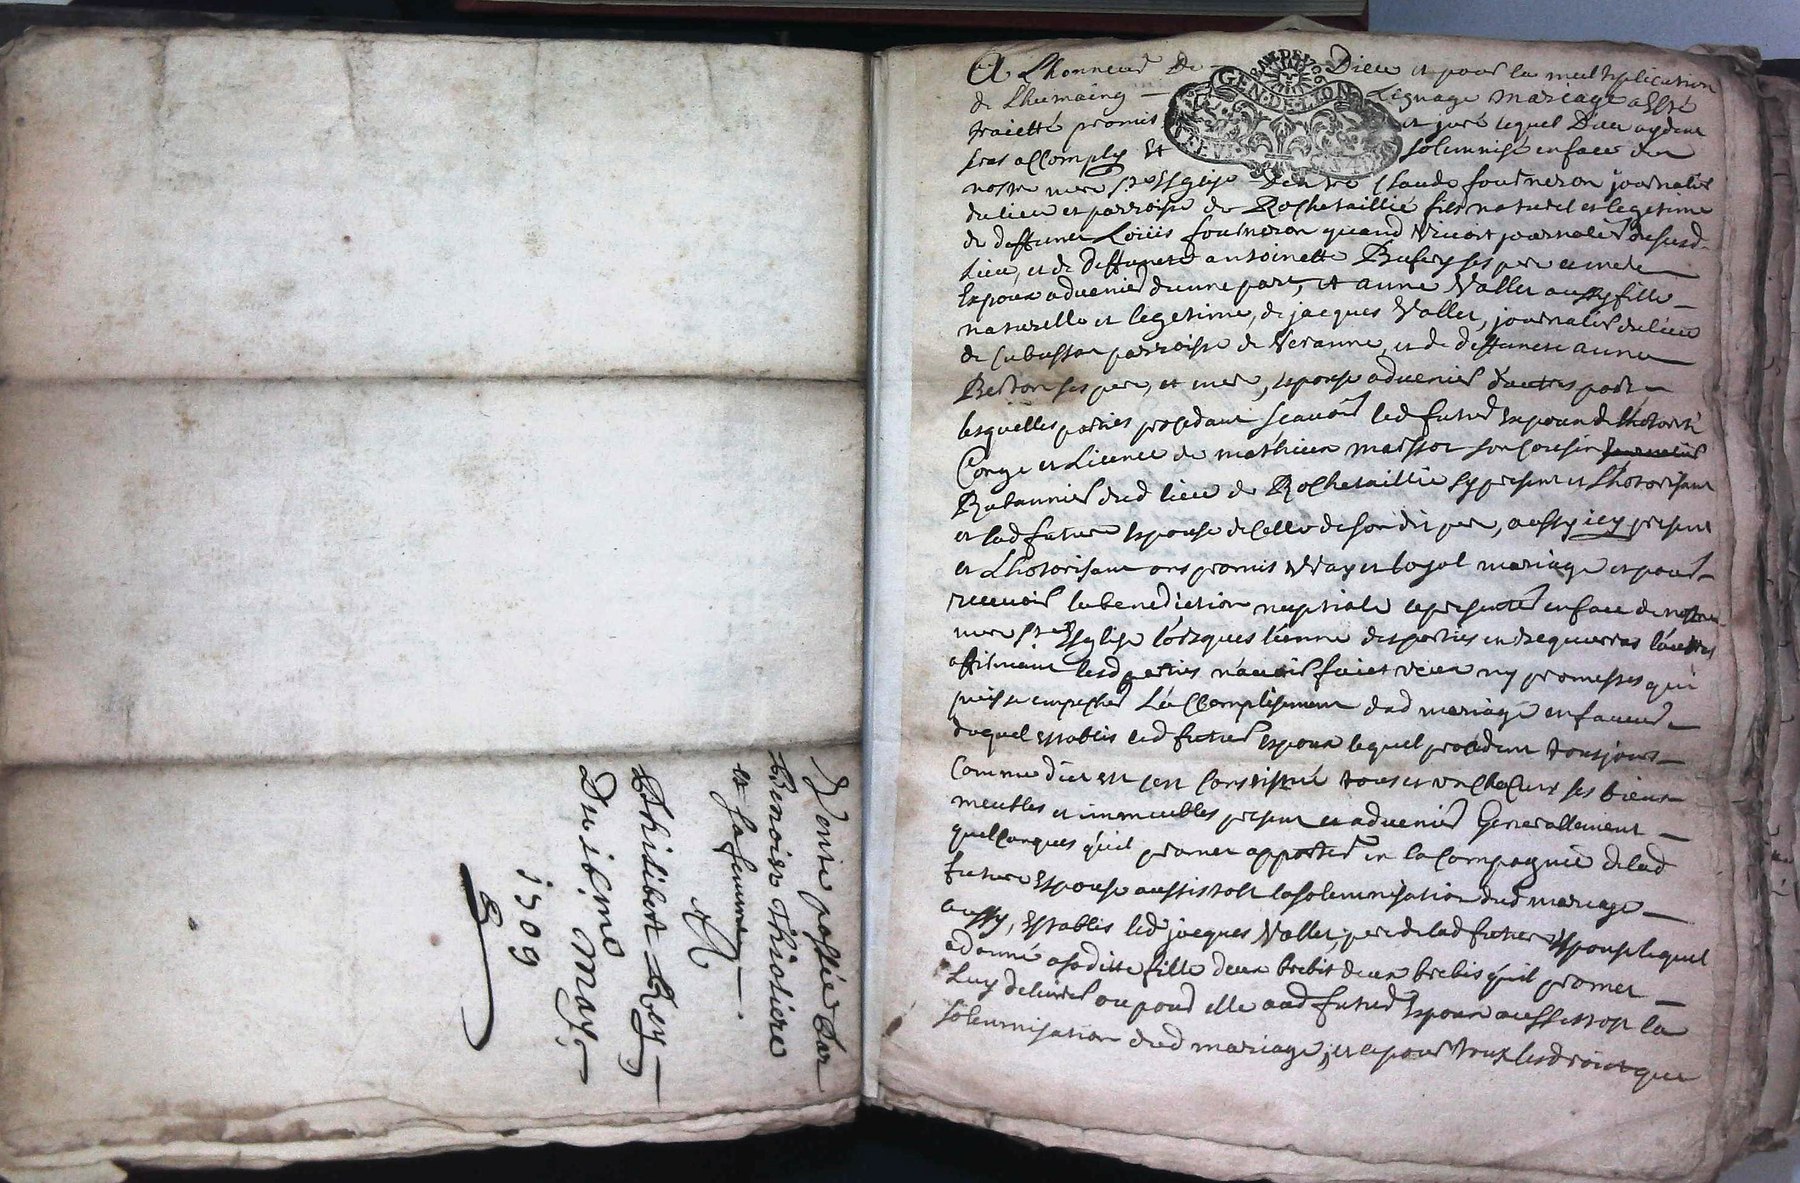 Vente passée par
Benoist Thiolliere
et sa femme
A
Philibert Rey
Du 16.me May
1709
A Lhonneur de Dieu et pour la multiplication
de Lhumaing Lignage mariage a esté
traicté promis et juré lequel Dieu aydant
sera accomply Et solemnisé en face de
nostre mere Ste Esglise Entre Claude fourneron journalier
du lieu et parroisse de Rochetaillié fils naturel et legetime
de deffunct Loüis fourneron quand vivoit journalier du susd
Lieu, et de deffuncte antoinette ses pere et mere
Espoux advenir d'une part, et anne Vallet aussy fille
naturelle et legetime, de jacques Vallet, journalier du lieu
de parroisse de Veranne, et de deffuncte anne
ses pere, et mere, espouse advenir d'autres part
lesquelles parties procedant scavoir led futur Espoux de Lhotorité
Conge et Licence de mathieu marssot son cousin
Rubannier dud lieu de Rochetaillié sy present et Lhotorisant
et lad future espouse de celle de son dit pere, aussy icy present
et Lhotorisant ont promis vray et loyal mariage et pour
recevoir la benediction nuptiale se presenter en face de nostre
mere Ste Esglise lorsques l'eunne des parties en requerras l'autres
affirmant lesd parties n'avoir faict veux ny promesses qui
puisse empecher L'accomplisement dud mariage en faveur
duquel establis led futur espoux lequel procedant tousjours
Comme dict est sest Constitué tous et un chacuns ses biens
meubles et immeubles present et advenir Generallement
quelconques quil promet apporter en la Compagnie de lad
future Espouse aussistost la solemnisation dud mariage
aussy, Establis led jacques Vallet, pere de lad future Espouse lequel
a donné a sa ditte fille deux brebis deux brebis quil promet
Luy delivrer ou pour elle aud futur Espoux aussistost la
solemnisation dud mariage, et ce pour tous les droict que
GEN. DE LION